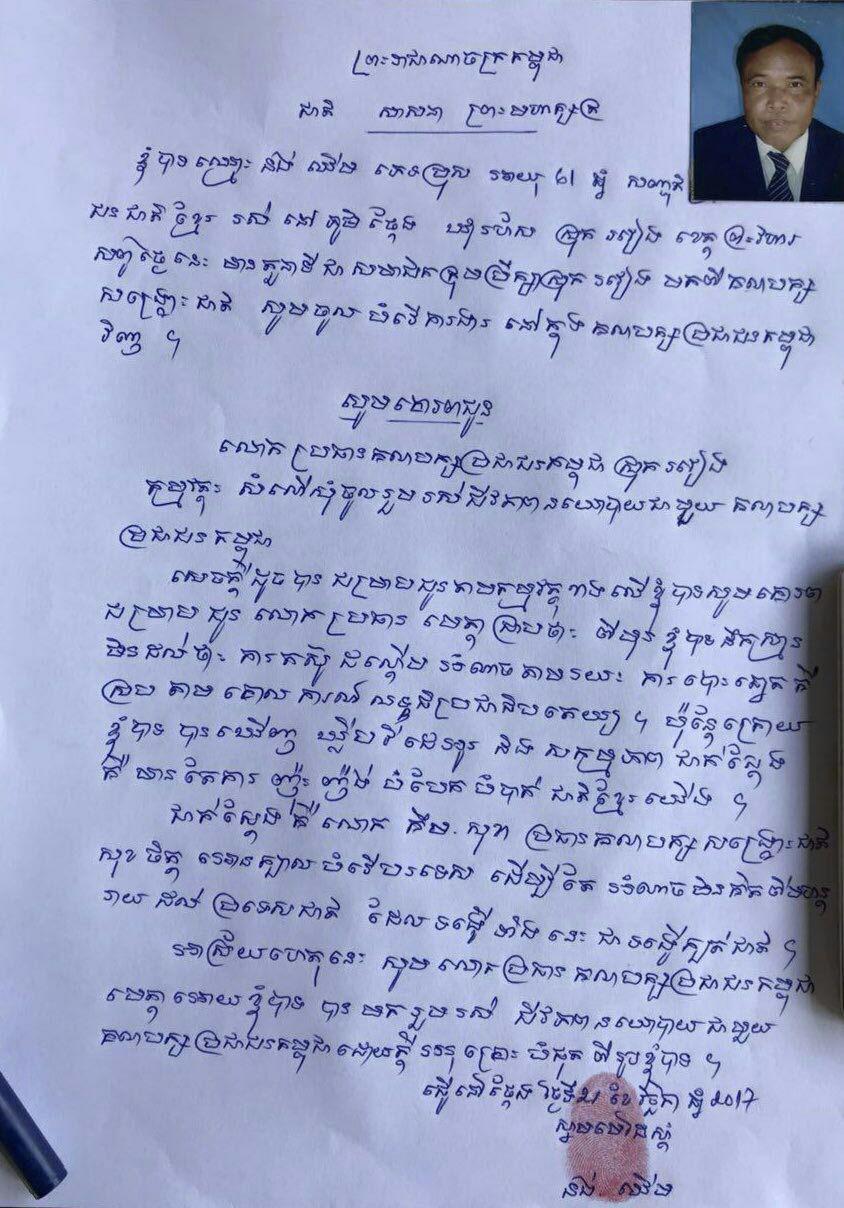 ព្រះរាជាណាចក្រកម្ពុជា
ជាតិ សាសនា ព្រះមហាក្សត្រ
ខ្ញុំបាទ ឈ្មោះ នង់ ឈើម ភេទប្រុស អាយុ ៦១ ឆ្នាំ សញ្ជាតិ
ជនជាតិ ខ្មែរ រស់នៅ ភូមិ ផ្តែង ស្រុក រវៀង ខេត្ត ព្រះវិហារ
សព្វថ្ងៃនេះ មានតួនាទី ជា សមាជិកក្រុមប្រឹក្សាស្រុក រវៀង មកពីគណបក្ស
សង្គ្រោះជាតិ សូមចូល បំរើការងារ នៅក្នុង គណបក្សប្រជាជនកម្ពុជា
វិញ ។
សូមគោរពជូន
លោក ប្រធានគណបក្សប្រជាជនកម្ពុជា ស្រុក រវៀង
កម្មវត្ថុ: សំណើសុំចូលរួមរស់ជីវភាពនយោបាយជាមួយ គណបក្ស
ប្រជាជនកម្ពុជា
សេចក្តីដូចបាន ជម្រាបជូនតាមកម្មវត្ថុខាងលើ ខ្ញុំបាទសូមគោរព
ជម្រាបជូន លោកប្រធាន មេត្តាជ្រាបថា: ពីមុន ខ្ញុំបាទនឹកស្មាន
មិនដល់ថា: ការតស៊ូ ដណ្តើម អំណាចតាមរយៈ ការបោះឆ្នោត គឺ
ស្រប តាមគោលការណ៍ លទ្ធិប្រជាធិបតេយ្យ ។ ប៉ុន្តែក្រោយ
ខ្ញុំបាទ បានឃើញ ឃ្លីប វីដេអូ និង សកម្មភាព ជាក់ស្តែង
គឺ មានតែការ ញុះញង់ បំបែកបំបាក់ ជាតិខ្មែរយើង ។
ជាក់ស្តែង គឺ លោក កឹម. សុខា ប្រធានគណបក្សសង្គ្រោះជាតិ
សុខចិត្ត អោនក្បាលបំរើបរទេស ដើម្បីតែ អំណាចមិនគិតពីមហន្ត
រាយ ដល់ ប្រទេសជាតិ ដែលទង្វើ ទាំងនេះ ជាទង្វើក្បត់ជាតិ ។
អាស្រ័យហេតុនេះ សូមលោកប្រធាន គណបក្សប្រជាជនកម្ពុជា
មេត្តាអោយ ខ្ញុំបាទ បានមករួមរស់ ជីវភាពនយោបាយជាមួយ
គណបក្សប្រជាជនកម្ពុជាដោយក្តីអនុគ្រោះបំផុត ពីរូបខ្ញុំបាទ ។
ធ្វើនៅផ្តែង ថ្ងៃទី21 ខែវិច្ឆិកា ឆ្នាំ 2017
ស្នាមមេដៃស្តាំ
នង់ ឈើម